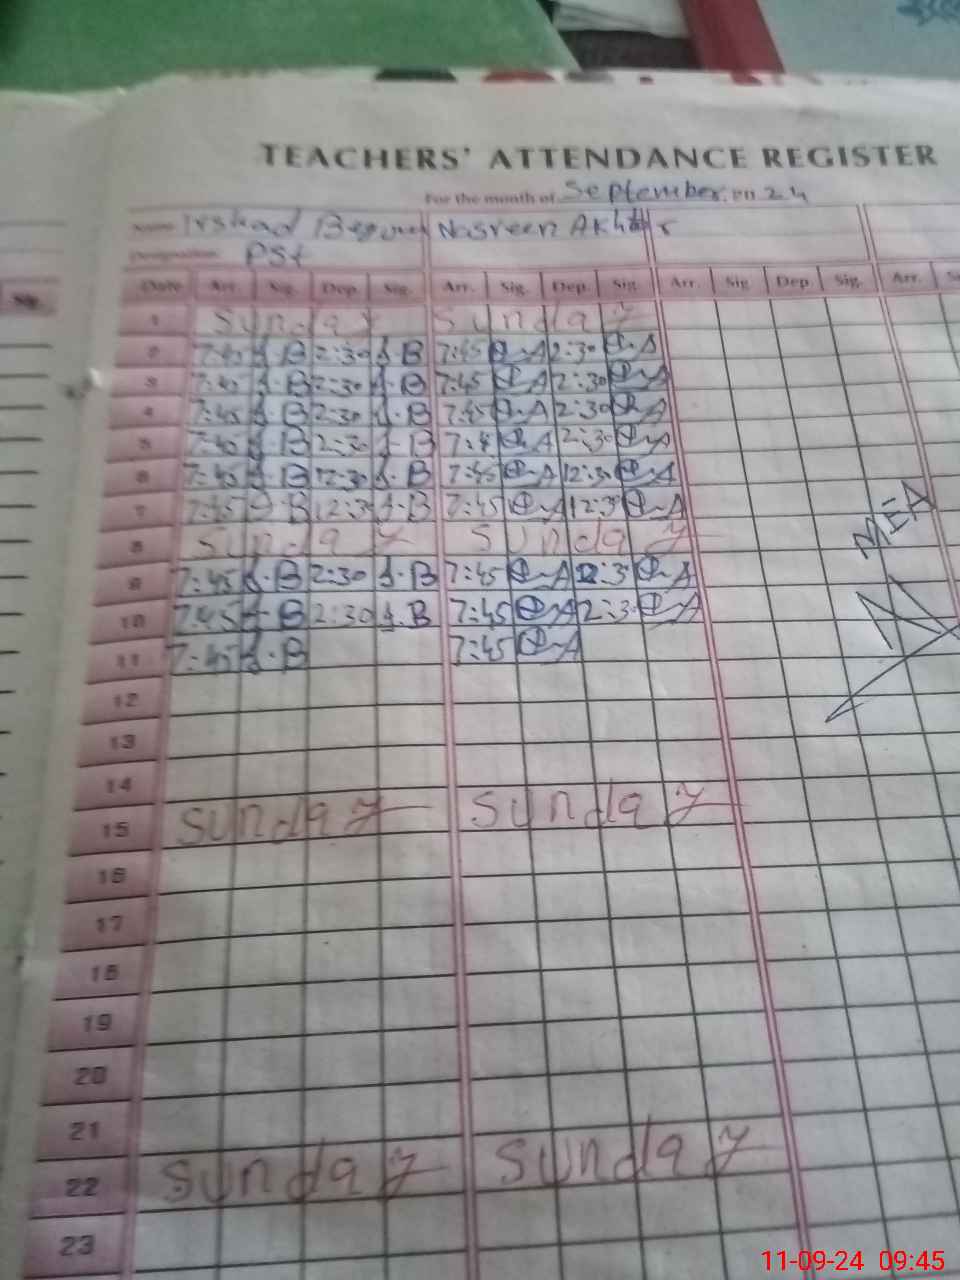 TEACHERS' ATTENDANCE REGISTER
For the month of September. 24
Name Irshad Begum Nasreen Akhtar
Designation PST
Sig.
Date Arr. Sig. Dep. Sig. Arr. Sig. Dep. Sig. Arr. Sig Dep. Sig. Arr.
1 Sunday Sunday
2 7:45 B 2:30 B 7:45 A 2:30 A
3 7:45 B 2:30 B 7:45 A 2:30 A
4 7:45 B 2:30 B 7:45 A 2:30 A
5 7:45 B 2:30 B 7:4 A 2:30 A
6 7:45 B 12:30 B 7:45 A 12:30 A
7 7:45 B 12:3 B 7:45 A 12:3 A
8 Sunday Sunday
9 7:45 B 2:30 B 7:45 A 2:3 A
10 7:45 B 2:30 B 7:45 A 2:3 A
11 7:45 B 7:45 A
MEA
12
13
14
15 Sunday Sunday
16
17
18
19
20
21
22 Sunday Sunday
23
11-09-24 09:45